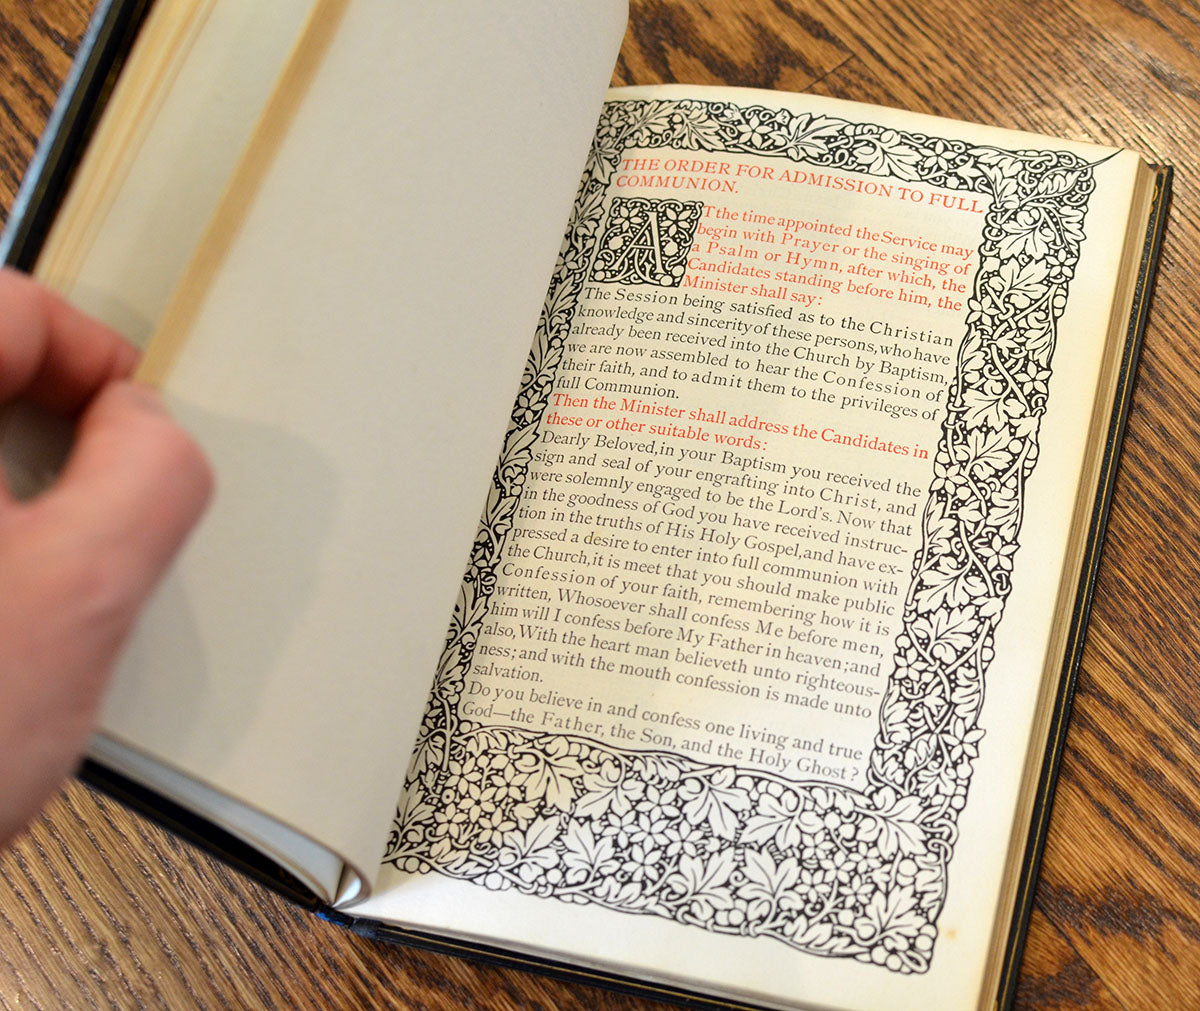 THE ORDER FOR ADMISSION TO FULL
COMMUNION.
AT the time appointed the Service may
begin with Prayer or the singing of
a Psalm or Hymn, after which, the
Candidates standing before him, the
Minister shall say:
The Session being satisfied as to the Christian
knowledge and sincerity of these persons, who have
already been received into the Church by Baptism,
we are now assembled to hear the Confession of
their faith, and to admit them to the privileges of
full Communion.
Then the Minister shall address the Candidates in
these or other suitable words:
Dearly Beloved, in your Baptism you received the
sign and seal of your engrafting into Christ, and
were solemnly engaged to be the Lord's. Now that
in the goodness of God you have received instruc-
tion in the truths of His Holy Gospel, and have ex-
pressed a desire to enter into full communion with
the Church, it is meet that you should make public
Confession of your faith, remembering how it is
written, Whosoever shall confess Me before men,
him will I confess before My Father in heaven; and
also, With the heart man believeth unto righteous-
ness; and with the mouth confession is made unto
salvation.
Do you believe in and confess one living and true
God—the Father, the Son, and the Holy Ghost?